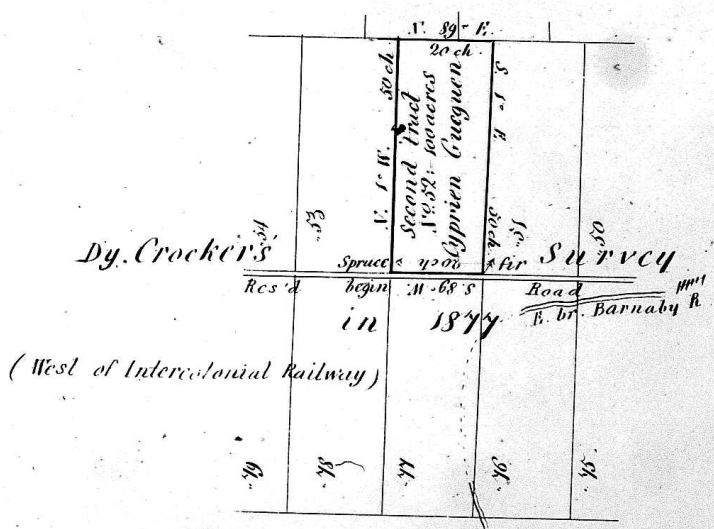 N. 89° E.
20 ch.
N. 1° W. 50 ch
Second tract
No 52:- 100 acres
Cyprien Gueguen
S. 1° E. 50 ch.
54
53
51
50
Dy. Crocker's Survey
Spruce 20 ch fir
Res'd begin S. 89° W. Road
E. br. Barnaby R
in 1877
( West of Intercolonial Railway )
49
48
47
46
45